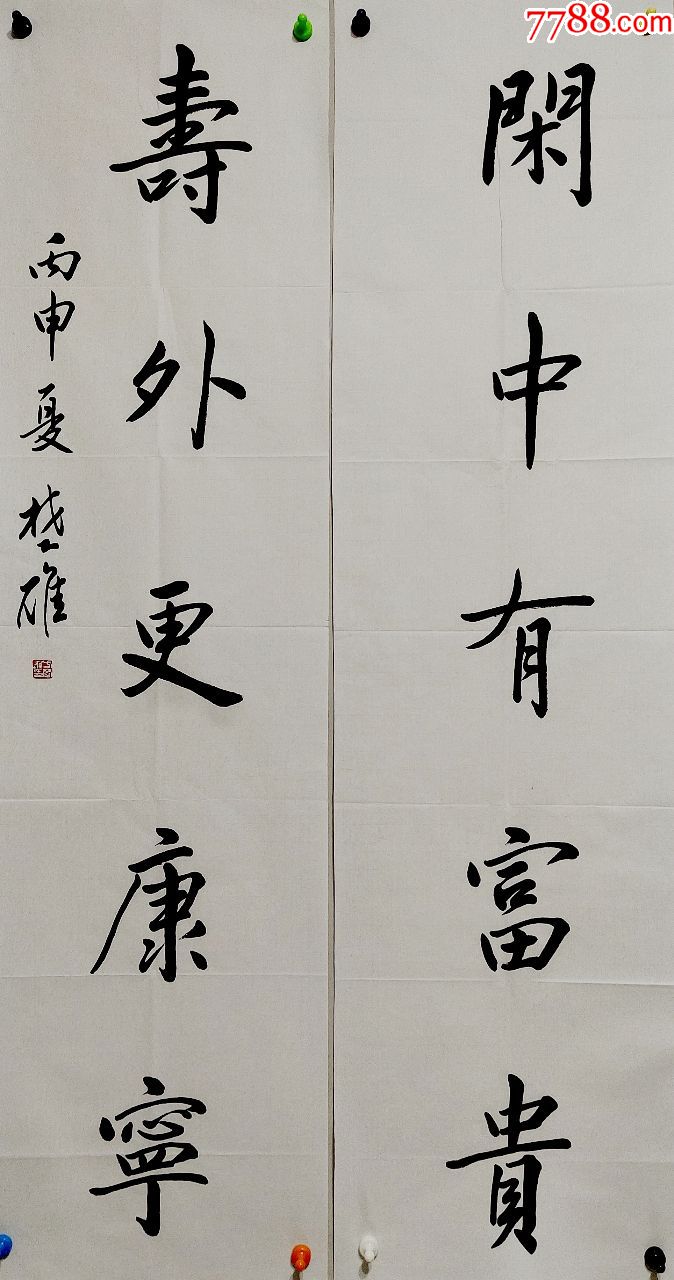 7788.com
閑中有富貴
壽外更康寧
丙申夏